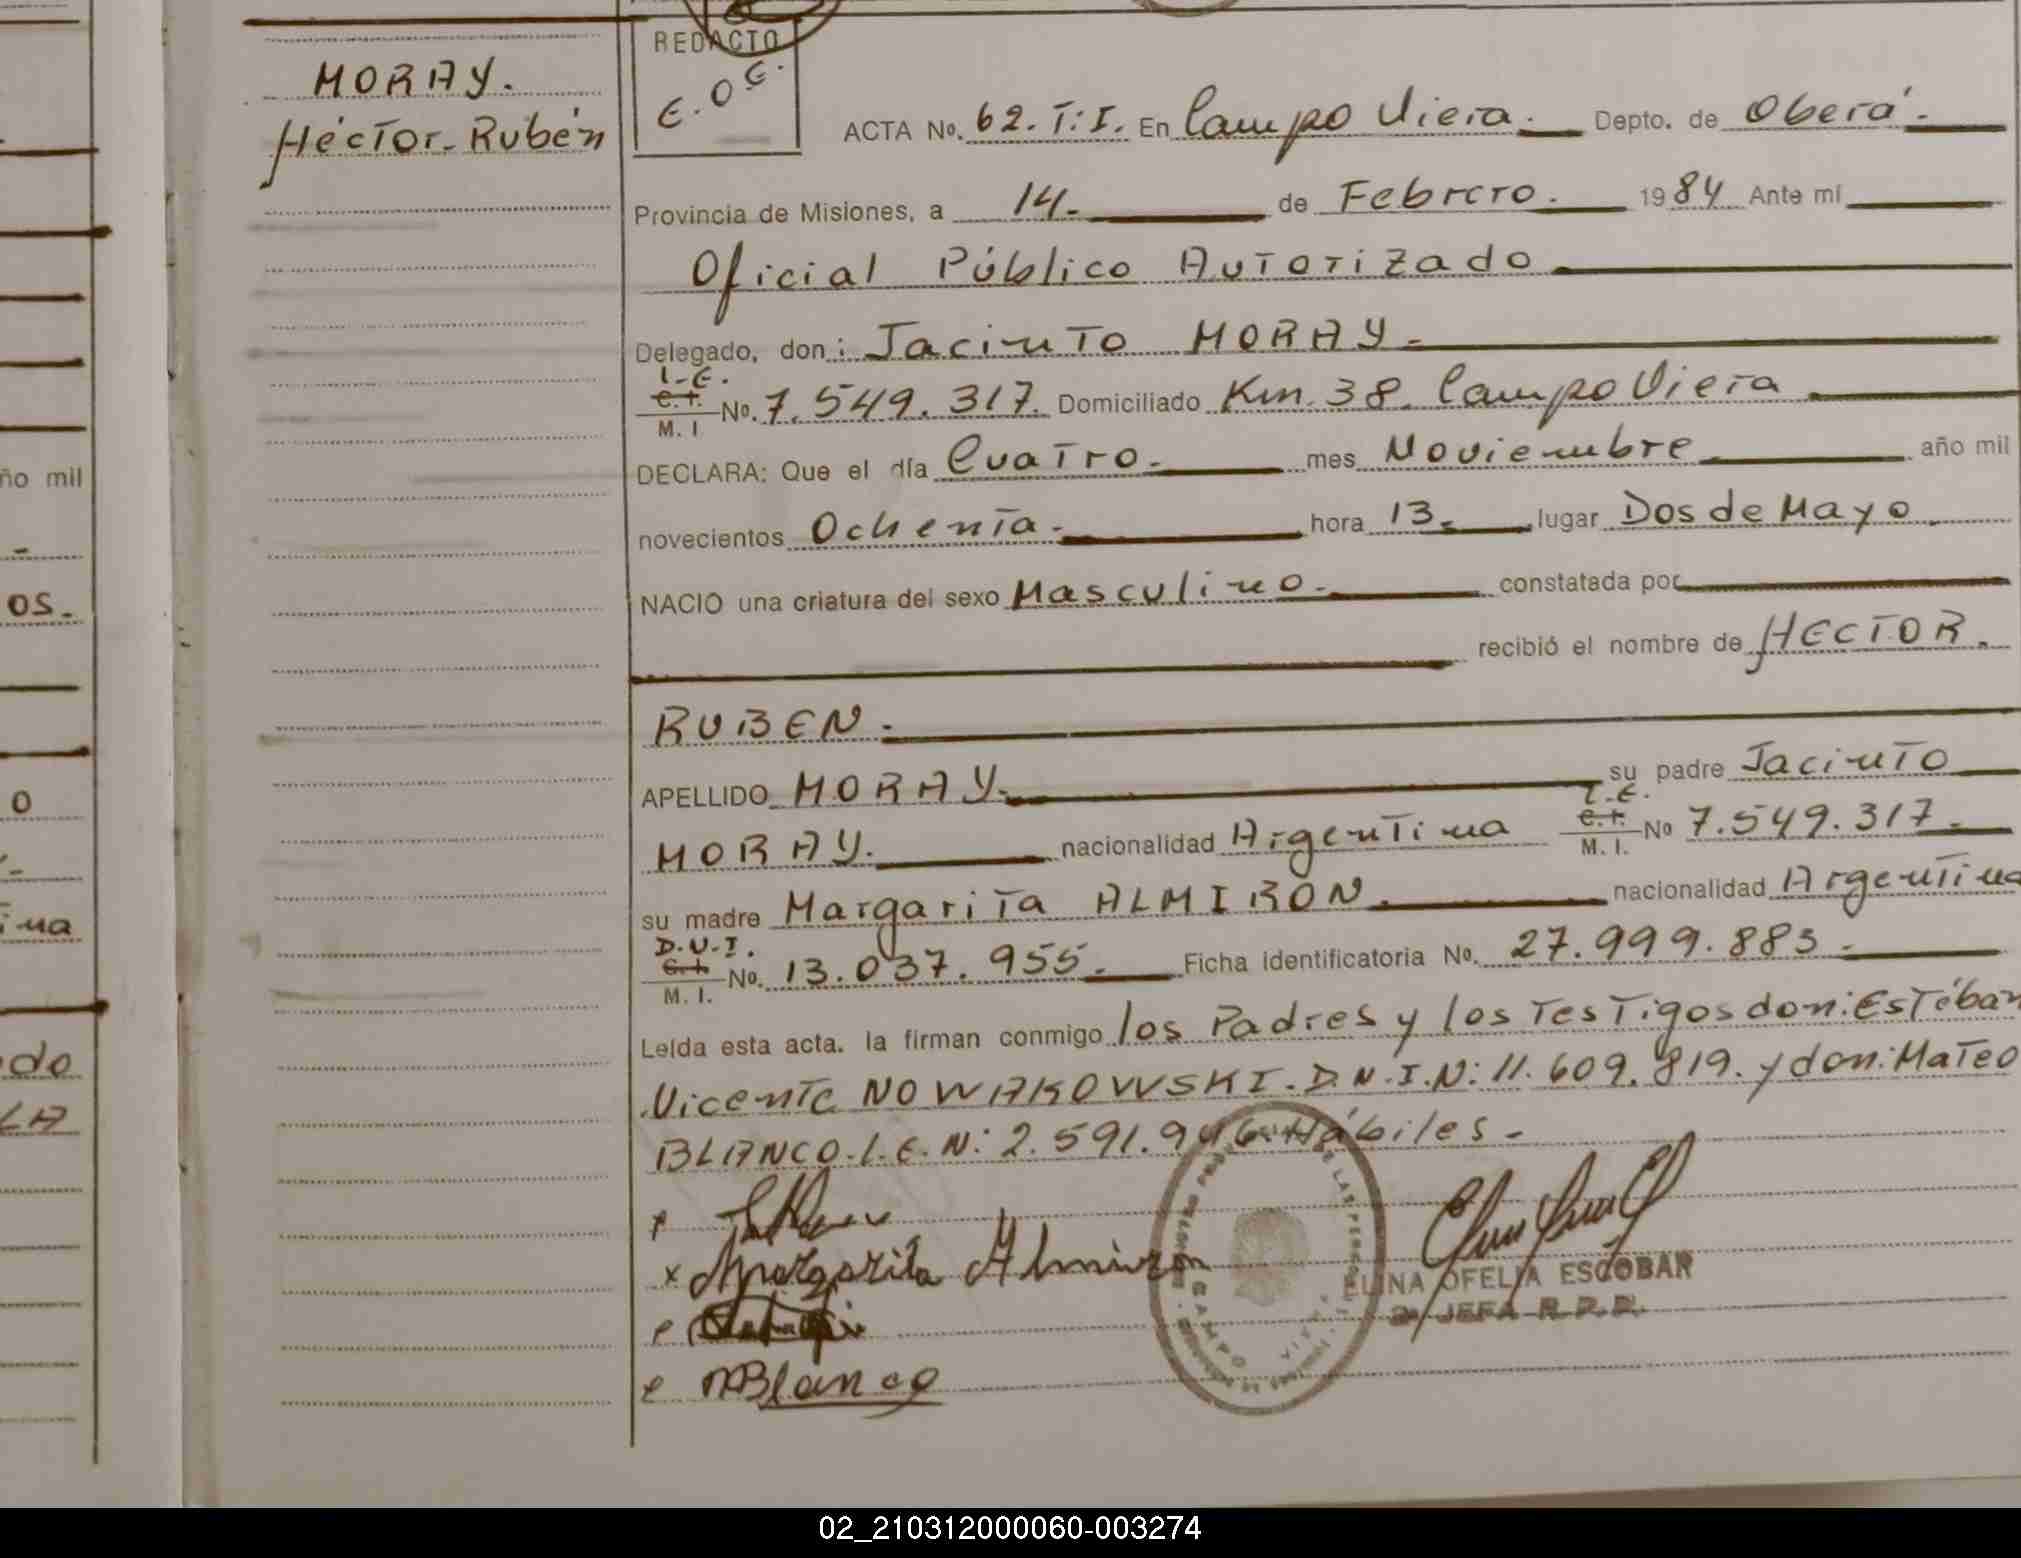 MORAY.
Héctor Rubén
REDACTO
E.O.E.
ACTA No. 62. T: I. En Campo Viera. Depto. de Oberá.
Provincia de Misiones, a 14. de Febrero. 1984 Ante mí
Oficial Público Autorizado
Delegado, don: Jacinto MORAY.
L.E.
C.I.
M. I No. 7.549.317. Domiciliado Km. 38. Campo Viera
DECLARA: Que el día Cuatro. mes Noviembre año mil
novecientos Ochenta. hora 13. lugar Dos de Mayo.
NACIO una criatura del sexo Masculino. constatada por
recibió el nombre de HECTOR.
RUBEN.
APELLIDO MORAY. su padre Jacinto
L.E.
C.I.
MORAY. nacionalidad Argentina M. I. No 7.549.317.
su madre Margarita ALMIRON. nacionalidad Argentina
D.U.I.
C.I.
M. I. No. 13.037.955. Ficha identificatoria No. 27.999.883.
Leída esta acta. la firman conmigo los Padres y los Testigos don: Estéban
Vicente NOWAKOWSKI. D.N.I.N: 11.609.819. y don: Mateo
BLANCO. L.E.N: 2.591.946. Hábiles.
x Margarita Almiron
ELINA OFELIA ESCOBAR
JEFA R.P.P.
MBlanco
CAMPO VIERA
ño mil
os.
o
ina
do
LA
02_210312000060-003274